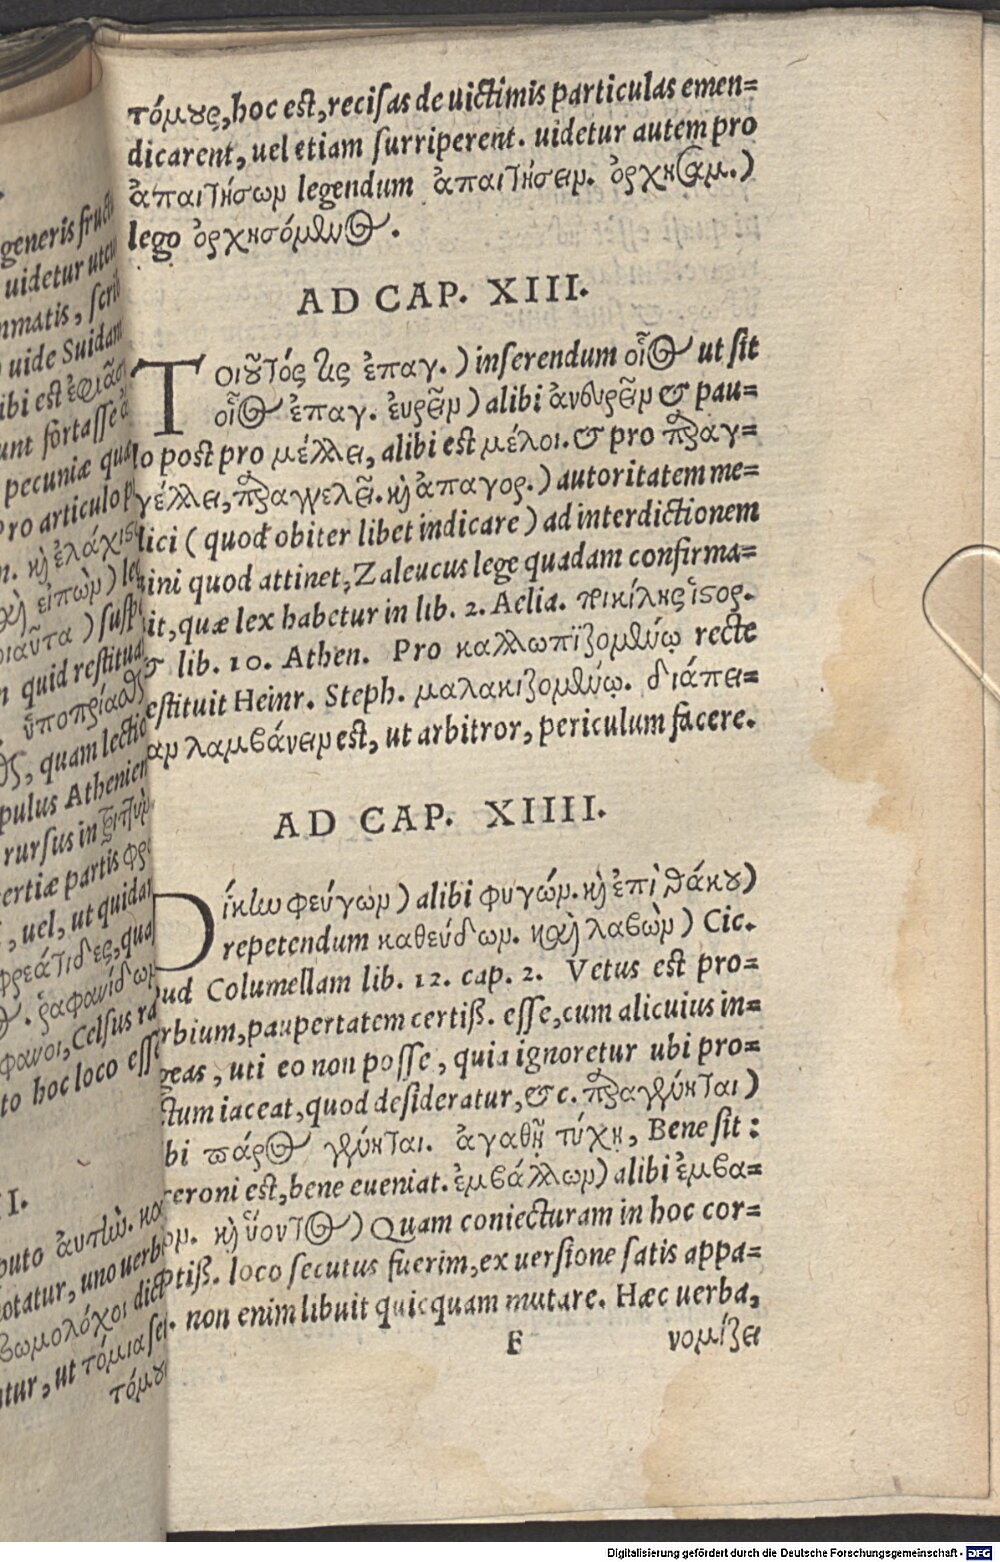 generis fructu
uidetur uten
mmatis, scri
uide Suidam
ibi est ἐφιᾶσι
unt fortasse
pecuniæ qua
Pro articulo
καὶ ἐλάχις
εἰπὼν) le
οιαῦτα) susp
quid restitua
ὑποπρίασθ
quam lectio
pulus Athenien
rursus in
ertiæ partis φρ
, uel, ut quidam
φρεάτιδες, qua
. ῥαφανίδων
φανοι, Celsus ra
to hoc loco esse
II.
puto
notatur, uno uerb
βωμολόχοι dict
atur, ut τόμια se
τόμου
τόμους, hoc est, recisas de uictimis particulas emen=
dicarent, uel etiam surriperent. uidetur autem pro
ἀπαιτήσων legendum ἀπαιτήσειν. ὀρχησαμ.)
lego ὀρχησόμενος.
AD CAP. XIII.
Τοιοῦτός τις ἐπαγ.) inserendum οἷος ut sit
οἷος ἐπαγ. ἐυρεῖν) alibi ἀνθυρεῖν & pau=
lo post pro μέλλει, alibi est μέλοι. & pro παραγ=
γέλλει, παραγγελεῖ. καὶ ἀπαγορ.) autoritatem me=
lici (quod obiter libet indicare) ad interdictionem
ini quod attinet, Zaleucus lege quadam confirma=
it, quæ lex habetur in lib. 2. Aelia. ποικίλης ἱστορ.
& lib. 10. Athen. Pro καλλωπιζομένῳ recte
estituit Heinr. Steph. μαλακιζομένῳ. διάπει=
αν λαμβάνειν est, ut arbitror, periculum facere.
AD CAP. XIIII.
Δίκην φεύγων) alibi φυγών. καὶ ἐπὶ θάκου)
repetendum καθεύδων. καὶ λαβὼν) Cic.
pud Columellam lib. 12. cap. 2. Vetus est pro=
rbium, paupertatem certiß. esse, cum alicuius in=
geas, uti eo non posse, quia ignoretur ubi pro=
ctum iaceat, quod desideratur, &c. παραγένηται)
bi πάρος γένηται. ἀγαθῇ τύχῃ, Bene sit:
ceroni est, bene eueniat. ἐμβάλλων) alibi ἐμβα=
ων. καὶ ὕοντος) Quam coniecturam in hoc cor=
ptiß. loco secutus fuerim, ex uersione satis appa=
. non enim libuit quicquam mutare. Hæc uerba,
F νομίζει
Digitalisierung gefördert durch die Deutsche Forschungsgemeinschaft - DFG